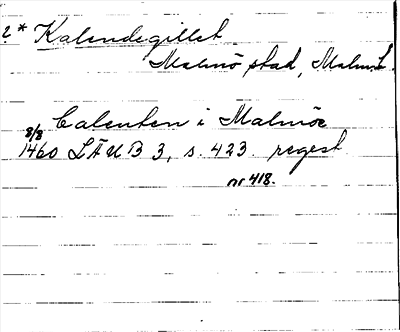 2* Kalendegillet
Malmö stad, Malm.L.
Calenten i Malmöe
8/8 1460 LÄUB 3, s. 423. regest
nr 418.